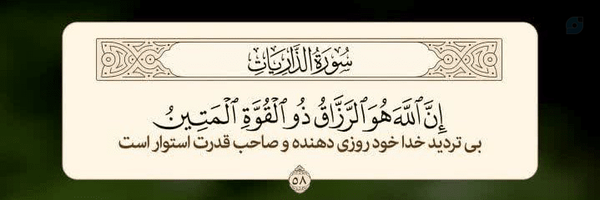 سُورَةُ الذَّارِيَاتِ
إِنَّ ٱللَّهَ هُوَ ٱلرَّزَّاقُ ذُو ٱلْقُوَّةِ ٱلْمَتِينُ
بی تردید خدا خود روزی دهنده و صاحب قدرت استوار است
٥٨